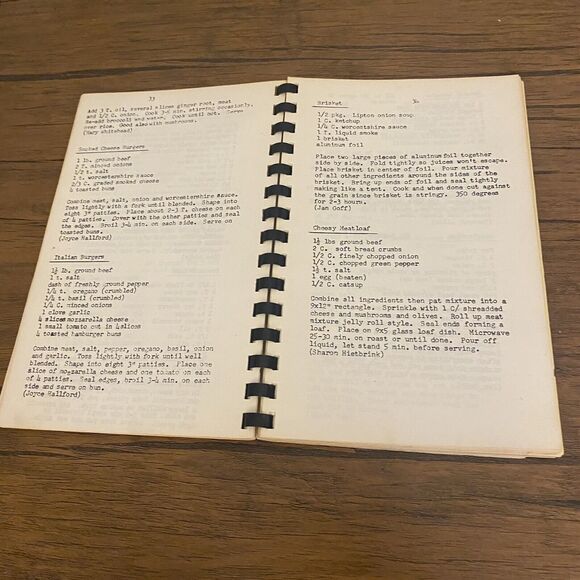 33
Add 3 T. oil, several slices ginger root, meat
and 1/2 C. onion. Cook 3-5 min. stirring occasionly.
Re-add broccoli and water. Cook until hot. Serve
over rice. Good also with mushrooms.
(Mary Whitehead)
Smoked Cheese Burgers
1 lb. ground beef
2 T. minced onions
1/2 t. salt
1 t. worcestershire sauce
2/3 C. grated smoked cheese
4 toasted buns
Combine meat, salt, onion and worcestershire sauce.
Toss lightly with a fork until blended. Shape into
eight 3" patties. Place about 2-3 T. cheese on each
of 4 patties. Cover with the other patties and seal
the edges. Broil 3-4 min. on each side. Serve on
toasted buns.
(Joyce Hallford)
Italian Burgers
1½ lb. ground beef
1 t. salt
dash of freshly ground pepper
1/4 t. oregano (crumbled)
1/4 t. basil (crumbled)
1/4 C. minced onions
1 clove garlic
4 slices mozzarella cheese
1 small tomato cut in 4 slices
4 toasted hamburger buns
Combine meat, salt, pepper, oregano, basil, onion
and garlic. Toss lightly with fork until well
blended. Shape into eight 3" patties. Place one
slice of mozzarella cheese and one tomato on each
of 4 patties. Seal edges, broil 3-4 min. on each
side and serve on bun.
(Joyce Hallford)
34
Brisket
1/2 pkg. Lipton onion soup
1 C. ketchup
1/4 C. worcestshire sauce
1 T. liquid smoke
1 brisket
aluminum foil
Place two large pieces of aluminum foil together
side by side. Fold tightly so juices won't escape.
Place brisket in center of foil. Pour mixture
of all other ingredients around the sides of the
brisket. Bring up ends of foil and seal tightly
making like a tent. Cook and when done cut against
the grain since brisket is stringy. 350 degrees
for 2-3 hours.
(Jan Goff)
Cheesy Meatloaf
1½ lbs ground beef
2 C. soft bread crumbs
1/2 C. finely chopped onion
1/2 C. chopped green pepper
1½ t. salt
1 egg (beaten)
1/2 C. catsup
Combine all ingredients then pat mixture into a
9x12" rectangle. Sprinkle with 1 C/ shreadded
cheese and mushrooms and olives. Roll up meat
mixture jelly roll style. Seal ends forming a
loaf. Place on 9x5 glass loaf dish. Microwave
25-30 min. on roast or until done. Pour off
liquid, let stand 5 min. before serving.
(Sharon Hietbrink)